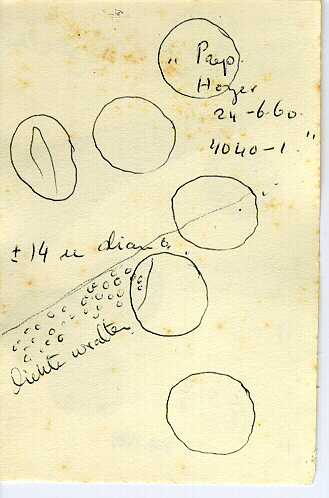 " Praep.
Hoyer
24-6-60.
4040-1. "
± 14 u diam.
lichte wratten